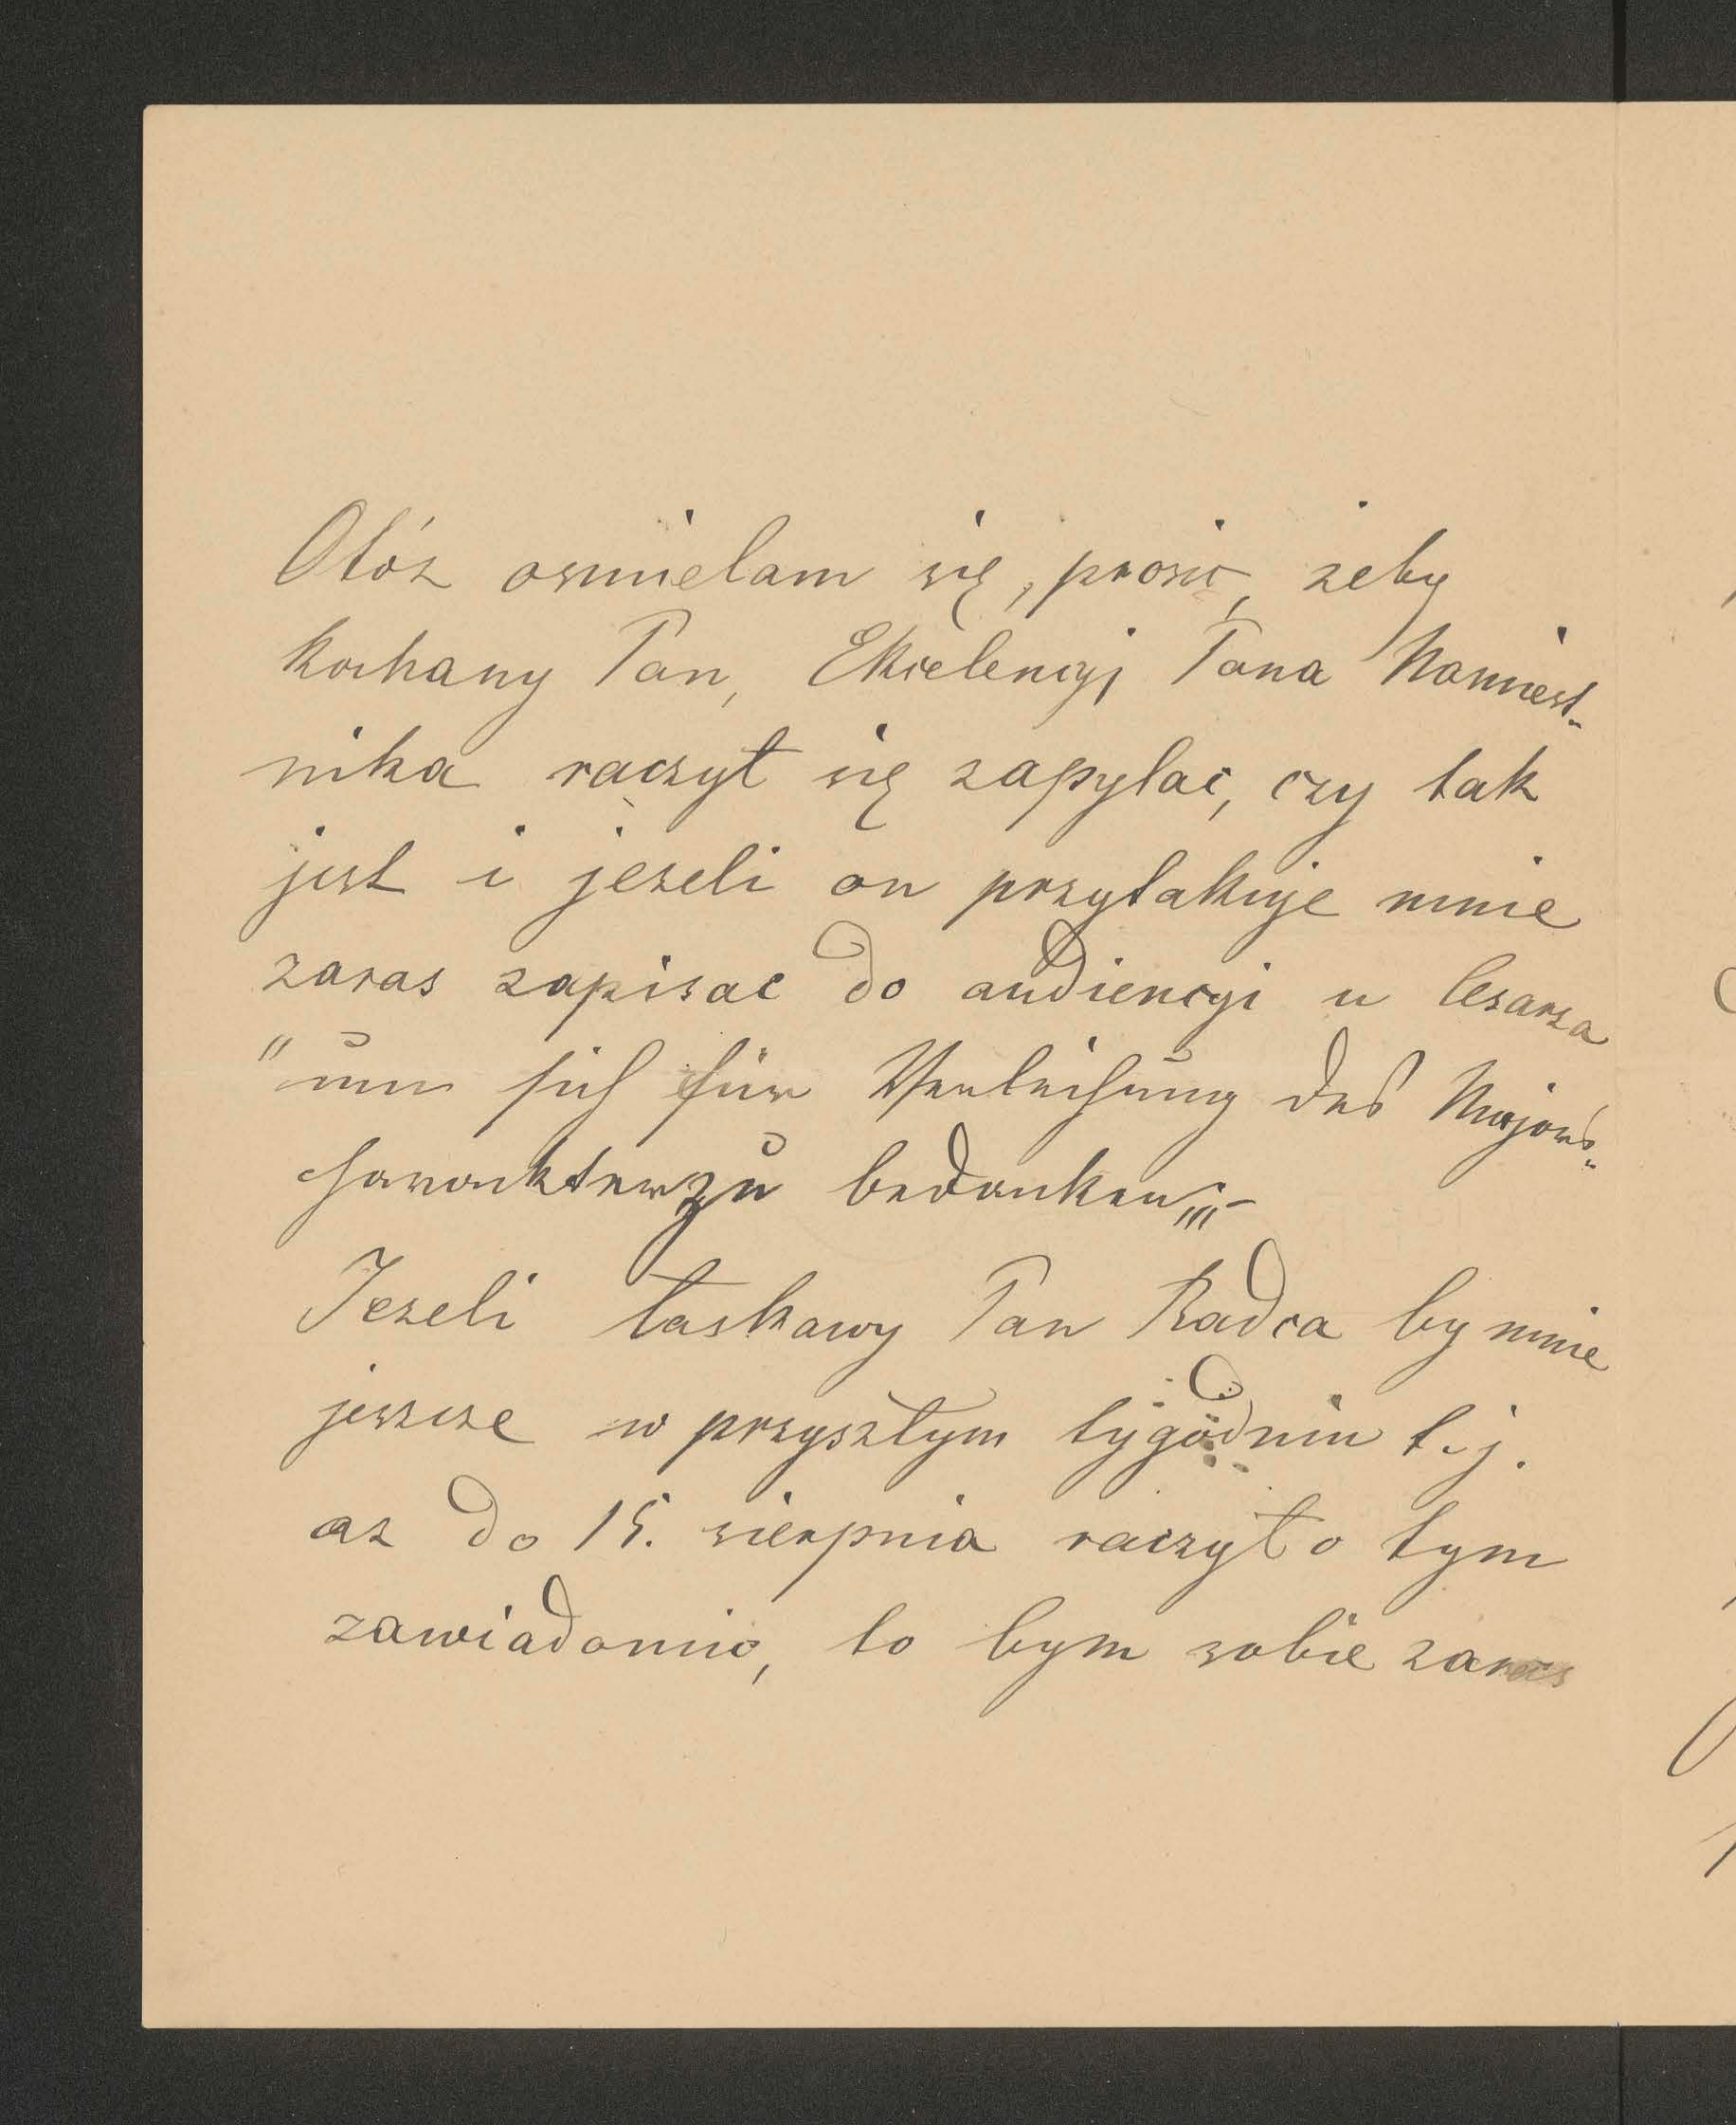 Otóz osmielam się, prosic, zeby
kochany Pan, Ekscelencyj Pana Namiest-
nika raczył się zapytac, czy tak
jest i jezeli on przytakuje mnie
zaras zapisac do audiencyi u Cesarza
"um sich für Verleihung des Majors-
charakters zu bedanken"-
Jezeli łaskawy Pan Radca by mnie
jeszcze w przyszłym tygodniu t.j.
az do 15. sierpnia raczył o tym
zawiadomic, to bym sobie zaras